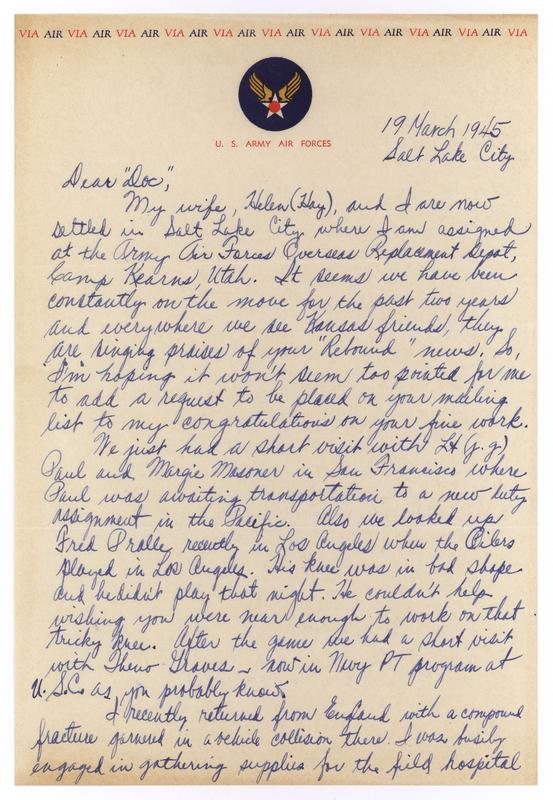 VIA AIR VIA AIR VIA AIR VIA AIR VIA AIR VIA AIR VIA AIR VIA AIR VIA AIR VIA AIR VIA
U. S. ARMY AIR FORCES
19 March 1945
Salt Lake City
Dear "Doc",
My wife, Helen (Hay), and I are now
settled in Salt Lake City where I am assigned
at the Army Air Forces Overseas Replacement Depot,
Camp Kearns, Utah. It seems we have been
constantly on the move for the past two years
and everywhere we see Kansas friends, they
are singing praises of your "Rebound" news. So,
I'm hoping it won't seem too pointed for me
to add a request to be placed on your mailing
list to my congratulations on your fine work.
We just had a short visit with Lt (j.g.)
Paul and Margie Masoner in San Francisco where
Paul was awaiting transportation to a new duty
assignment in the Pacific. Also we looked up
Fred Pralle, recently in Los Angeles when the Oilers
played in Los Angeles. His knee was in bad shape
and he didn't play that night. He couldn't help
wishing you were near enough to work on that
tricky knee. After the game we had a short visit
with Theno Graves - now in Navy PT program at
U.S.C. as you probably know.
I recently returned from England with a compound
fracture garnered in a vehicle collision there. I was busily
engaged in gathering supplies for the field hospital